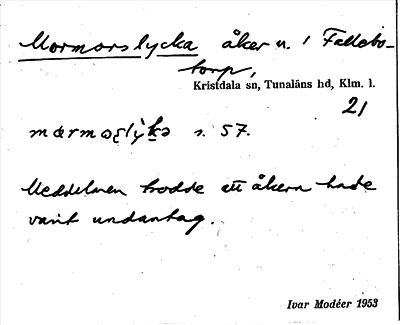 Mormorslycka åker n. 1 Fallebo-
torp,
Kristdala sn, Tunaläns hd, Klm. l.
21
s. 57.
Meddelaren trodde att åkern hade
varit undantag.
Ivar Modéer 1953